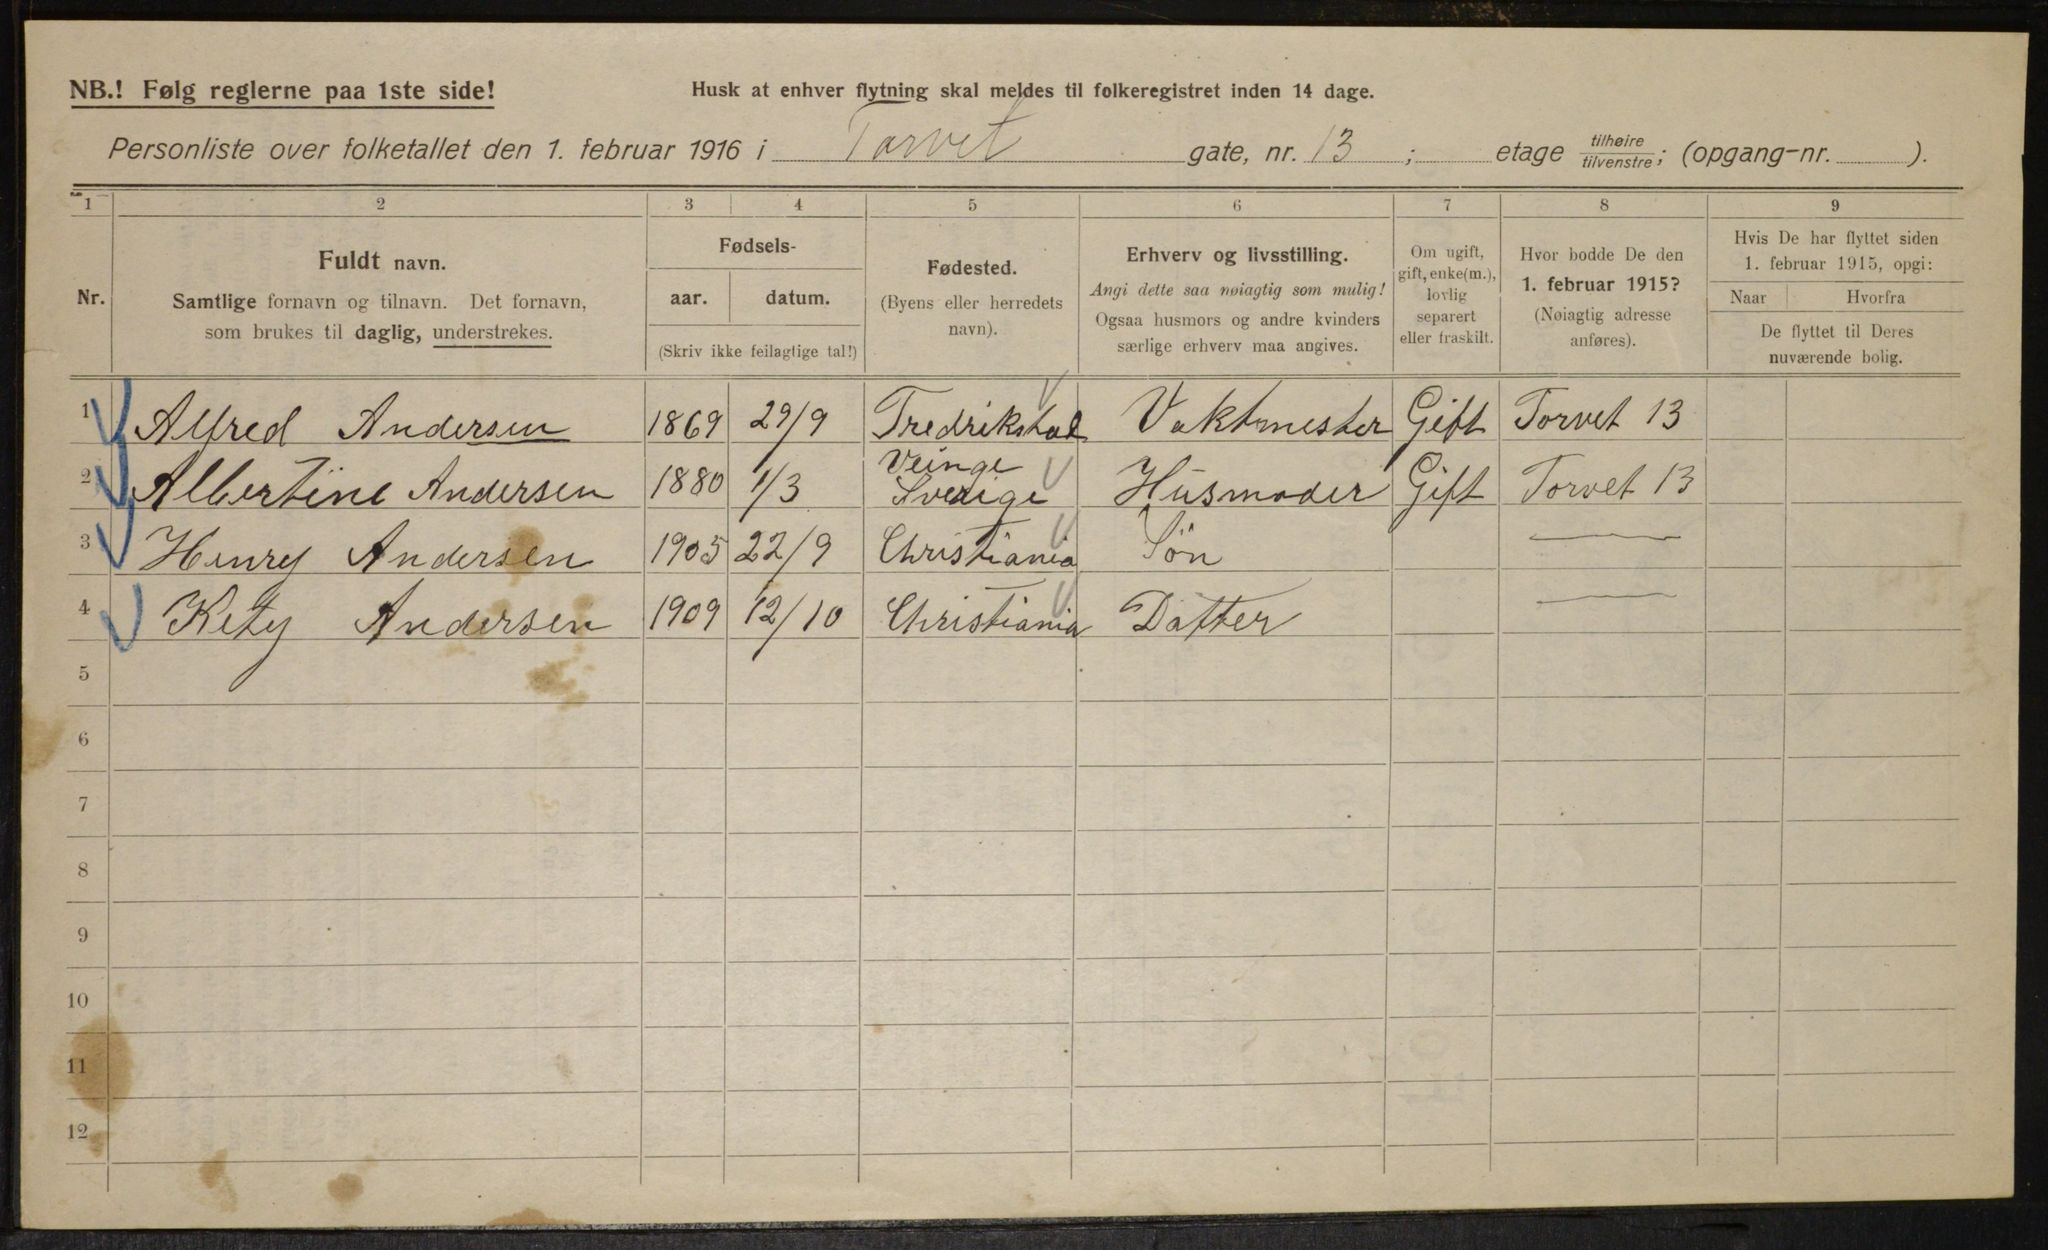 NB.! Følg reglerne paa 1ste side! Husk at enhver flytning skal meldes til folkeregistret inden 14 dage.
Personliste over folketallet den 1. februar 1916 i Torvet gate, nr. 13 ; etage tilhøire/tilvenstre; (opgang-nr. ).
1 2 3 4 5 6 7 8 9
Nr.
Fuldt navn.
Samtlige fornavn og tilnavn. Det fornavn,
som brukes til daglig, understrekes.
Fødsels-
aar. datum.
(Skriv ikke feilagtige tal!)
Fødested.
(Byens eller herredets
navn).
Erhverv og livsstilling.
Angi dette saa nøiagtig som mulig!
Ogsaa husmors og andre kvinders
særlige erhverv maa angives.
Om ugift,
gift, enke(m.),
lovlig
separert
eller fraskilt.
Hvor bodde De den
1. februar 1915?
(Nøiagtig adresse
anføres).
Hvis De har flyttet siden
1. februar 1915, opgi:
Naar Hvorfra
De flyttet til Deres
nuværende bolig.
1 Alfred Andersen 1869 29/9 Fredrikstad Vaktmester Gift Torvet 13
2 Albertine Andersen 1880 1/3 Veinge Sverige Husmoder Gift Torvet 13
3 Henry Andersen 1905 22/9 Christiania Søn —
4 Kety Andersen 1909 12/10 Christiania Datter —
5
6
7
8
9
10
11
12